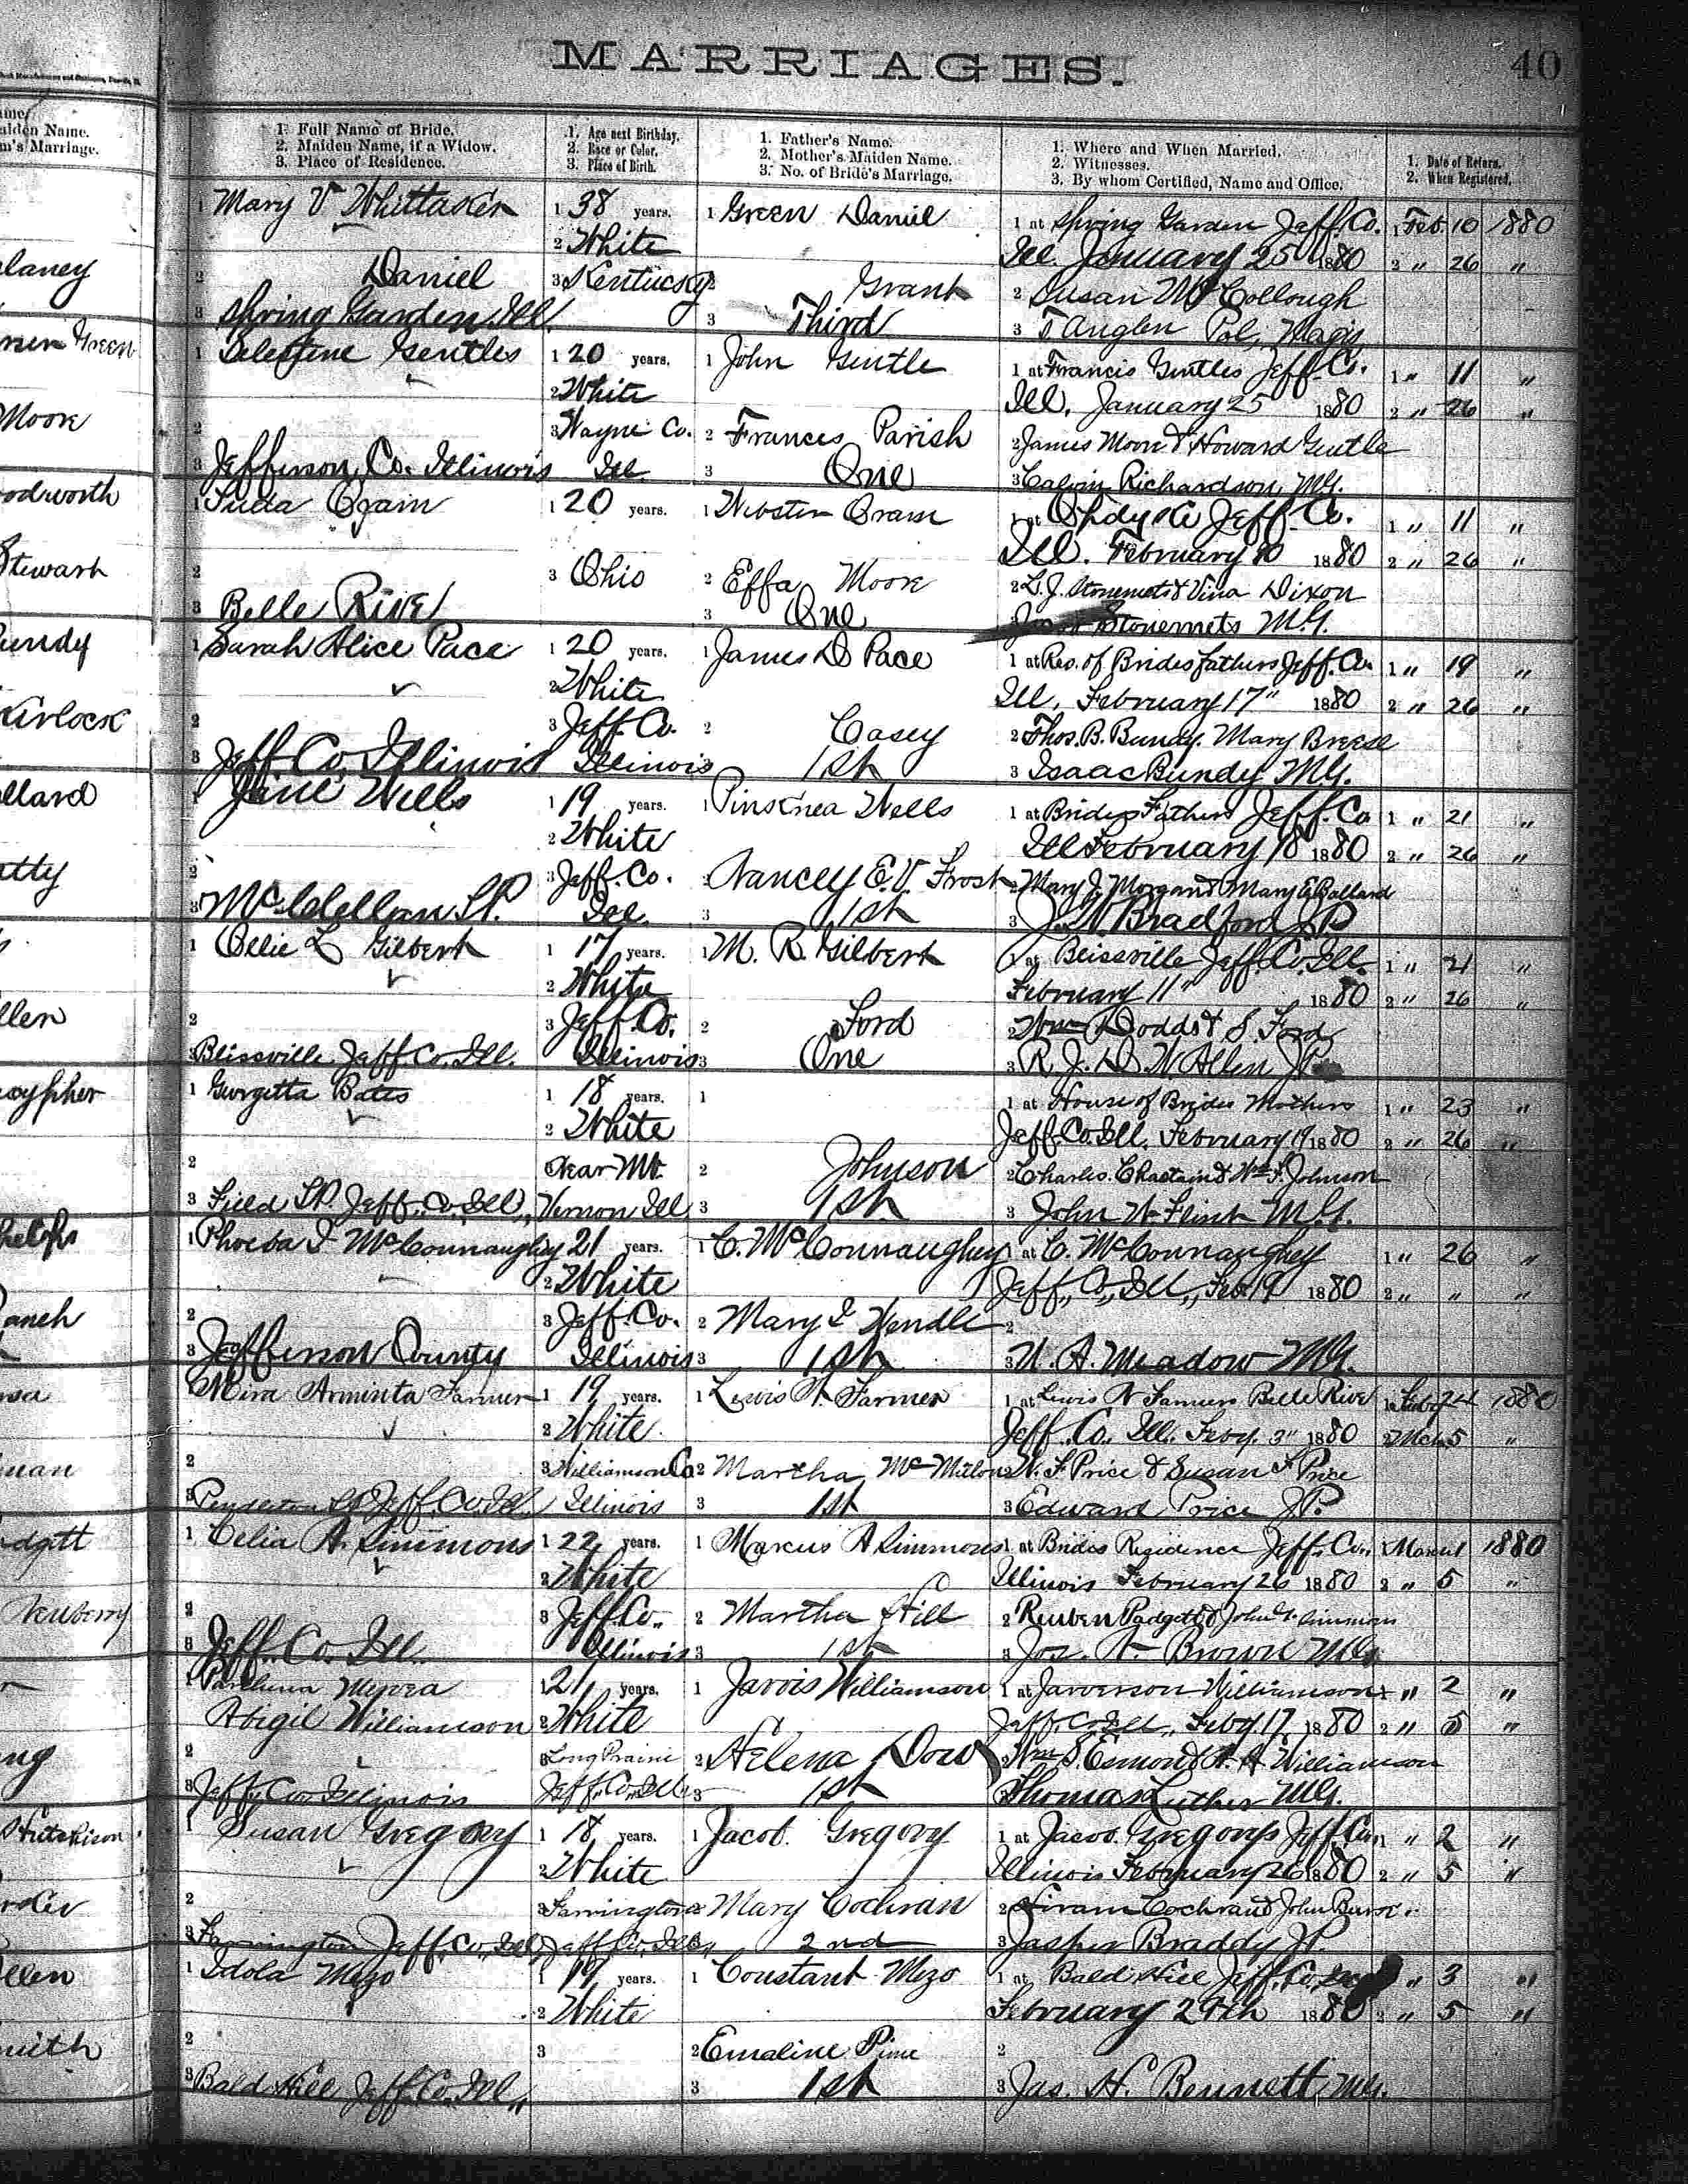 MARRIAGES.
40
1. Full Name of Bride.
2. Maiden Name, if a Widow.
3. Place of Residence.
1. Age next Birthday.
2. Race or Color.
3. Place of Birth.
1. Father's Name.
2. Mother's Maiden Name.
3. No. of Bride's Marriage.
1. Where and When Married.
2. Witnesses.
3. By whom Certified, Name and Office.
1. Date of Return.
2. When Registered.
aiden Name.
m's Marriage.
laney
Green
Moore
odworth
Stewart
undy
llard
atty
llen
man
Newberry
ng
Hutchison
1 Mary V Whittaker 1 38 years. 1 Green Daniel 1 at Spring Garden Jeff. Co. 1 Feb. 10 1880
2 White Ill. January 25 1880 2 " 26 "
2 Daniel 3 Kentucky 2 Grant 2 Susan McCollough
3 Spring Garden Ill. 3 Third 3 T Anglen Pol. Mags
1 Celestine Gentles 1 20 years. 1 John Gentle 1 at Francis Gentles Jeff. Co. 1 " 11 "
2 White Ill. January 25 1880 2 " 26 "
2 3 Wayne Co. 2 Frances Parish 2 James Moore & Howard Gentle
3 Jefferson Co. Illinois Ill 3 One 3 Calvin Richardson, MG.
1 Crain 1 20 years. 1 Webster Crain 1 at Opdyke Jeff. Co. 1 " 11 "
Ill. February 10 1880 2 " 26 "
2 3 Ohio 2 Effa Moore 2 L. J. Stonemets & Vina Dixon
3 Belle River 3 One Stonemets M.G.
1 Sarah Alice Pace 1 20 years. 1 James D Pace 1 at Res. of Brides fathers Jeff. Co. 1 " 19 "
2 White Ill. February 17" 1880 2 " 26 "
2 3 Jeff. Co. 2 Casey 2 Thos. B. Bundy. Mary Breese
3 Jeff Co. Illinois Illinois 3 1st 3 Isaac Bundy M.G.
1 Jane Wells 1 19 years. 1 Pinknea Wells 1 at Brides Fathers Jeff. Co 1 " 21 "
2 White Ill February 18 1880 2 " 26 "
2 3 Jeff. Co. 2 Nancey E. V. Frost 2 Mary J. Morgan & Mary E Ballard
3 McClellan T.P. Ill. 3 1st 3 J. N. Bradford J.P
1 Ollie L Gilbert 1 17 years. 1 M. R. Gilbert 1 at Blissville Jeff. Co. Ill. 1 " 21 "
2 White February 11" 1880 2 " 26 "
2 3 Jeff. Co. 2 Ford 2 Wm Dodds & S. Ford
3 Blissville Jeff. Co. Ill. Illinois 3 One 3 R. J. D. W Allen J.P.
1 Georgetta Bates 1 18 years. 1 1 at House of Brides Mothers 1 " 23 "
2 White Jeff. Co. Ill. February 19 1880 2 " 26 "
2 Near Mt. 2 Johnson 2 Charles Chastain & Wm F. Johnson
3 Field T.P. Jeff. Co. Ill. Vernon Ill 3 1st 3 John W. Flint M.G.
1 Phoeba I McConnaughey 21 years. 1 C. McConnaughey 1 at C. McConnaughey 1 " 26 "
2 White Jeff. Co. Ill., Feb. 19 1880 2 " " "
2 3 Jeff. Co. 2 Mary I Wendle 2
3 Jefferson County Illinois 3 1st 3 A. Meadow M.G.
1 Mira Arminta Farmer 1 19 years. 1 Lewis W. Farmer 1 at Lewis W Farmers Belle River 1 Feby 24 1880
2 White. Jeff. Co. Ill. Feby. 3" 1880 2 Mch 5 "
2 3 Williamson Co 2 Martha 2 W. F. Price & Susan F Price
3 Pendleton T.P. Jeff. Co. Ill. Illinois 3 1st 3 Edward Price J.P.
1 Celia A. Simmons 1 22 years. 1 Marcus A Simmons 1 at Brides Residence Jeff. Co. 1 March 1 1880
2 White Illinois February 26 1880 2 " 5 "
2 3 Jeff Co. 2 Martha Hill 2 Reuben Padgett &
3 Jeff. Co. Ill. Illinois 3 1st 3 Jos. A. Brown M.G.
1 Williamson 1 21 years. 1 Jarvis Williamson 1 at Jarverson Williamson 1 " 2 "
Abigil Williamson 2 White Jeff. Co. Ill., Feby 17 1880 2 " 5 "
2 3 Long Prairie 2 Helena Dow 2 Wm S. Esmon & A Williamson
3 Jeff. Co. Illinois Jeff. Co. Ill. 3 1st 3 Thomas Luther M.G.
1 Susan Gregory 1 18 years. 1 Jacob Gregory 1 at Jacob Gregorys Jeff. Co. 1 " 2 "
2 White Illinois February 26 1880 2 " 5 "
2 3 Farrington 2 Mary Cochran 2 Hiram Cochran & John
3 Farrington Jeff. Co. Ill. Jeff. Co. Ill. 3 2nd 3 Jasper Braddy J.P.
1 Idola Mezo 1 19 years. 1 Constant Mezo 1 at Bald Hill Jeff. Co. 1 " 3 "
2 White February 29th 1880 2 " 5 "
2 3 2 Emaline 2
3 Bald Hill Jeff. Co. Ill. 3 1st 3 Jas. H. Bennett M.G.